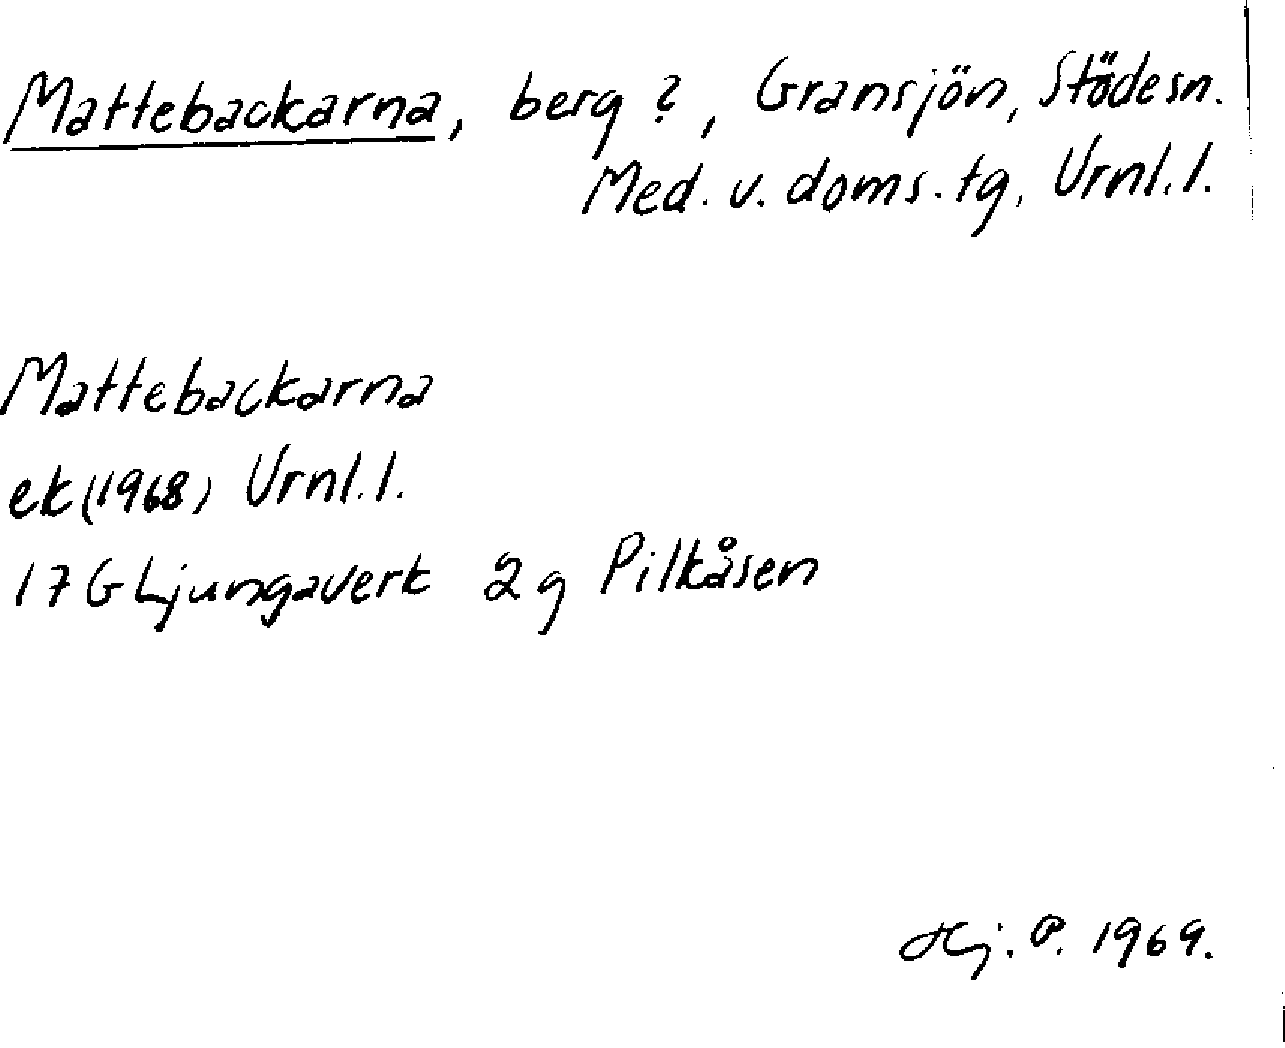 Mattebackarna, berg ?, Gransjön, Stöde sn.
Med. v. doms. tg, Vrnl. l.
Mattebackarna
ek (1968) Vrnl. l.
17 G Ljungaverk 2 g Pilkåsen
Hj. P. 1969.